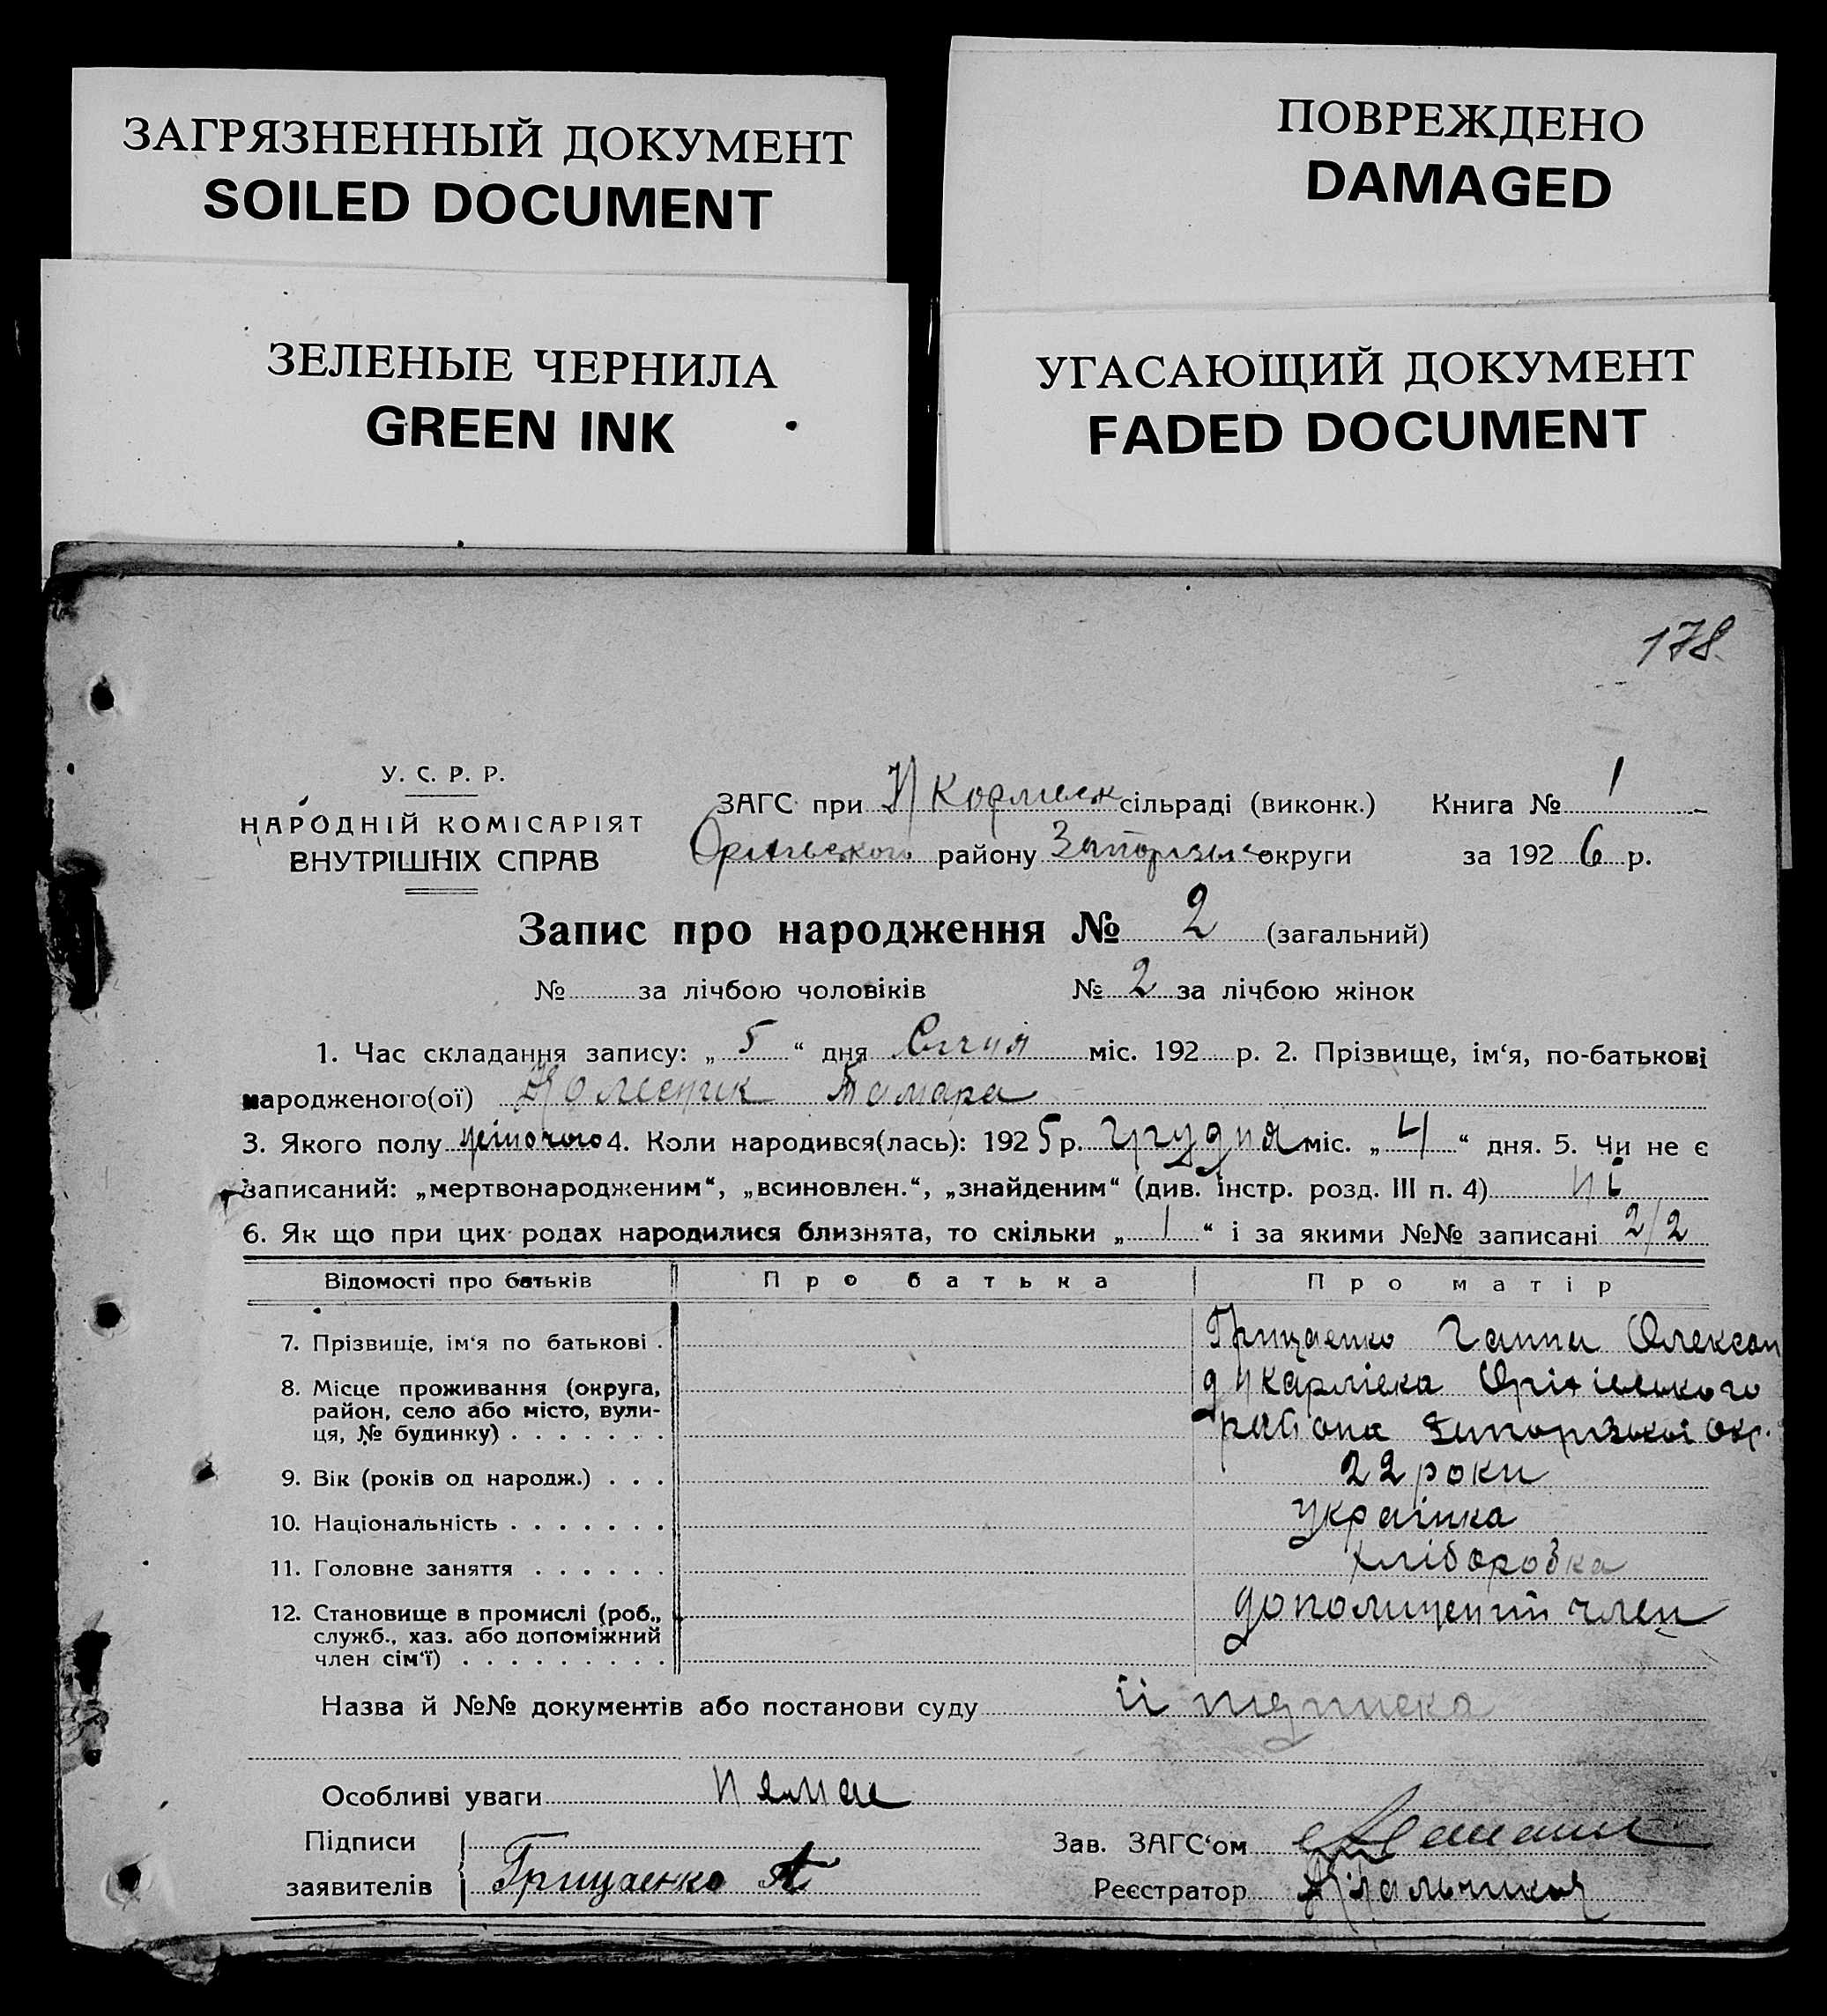 ЗАГРЯЗНЕННЫЙ ДОКУМЕНТ
SOILED DOCUMENT
ПОВРЕЖДЕНО
DAMAGED
ЗЕЛЕНЫЕ ЧЕРНИЛА
GREEN INK
УГАСАЮЩИЙ ДОКУМЕНТ
FADED DOCUMENT
178
У. С. Р. Р.
НАРОДНІЙ КОМІСАРІЯТ
ВНУТРІШНІХ СПРАВ
ЗАГС при сільраді (виконк.) Книга № 1
району округи за 192 6 р.
Запис про народження № 2 (загальний)
№ за лічбою чоловіків № 2 за лічбою жінок
1. Час складання запису: „ 5 “ дня Січня міс. 192 р. 2. Прізвище, ім‘я, по-батькові
народженого(ої) Тамара
3. Якого полу жіночого 4. Коли народився(лась): 192 5 р. грудня міс. „ 4 “ дня. 5. Чи не є
записаний: „мертвонародженим“, „всиновлен.“, „знайденим“ (див. інстр. розд. III п. 4) ні
6. Як що при цих родах народилися близнята, то скільки „ 1 “ і за якими №№ записані 2/2
Відомості про батьків Про батька Про матір
7. Прізвище, ім‘я по батькові . Грицаенко Ганна Олексан
8. Місце проживання (округа,
район, село або місто, вули-
ця, № будинку) . . . . . . . района Запорізької Окр.
9. Вік (років од народж.) . . . 22 роки
10. Національність . . . . . . . українка
11. Головне заняття . . . . . . хліборобка
12. Становище в промислі (роб.,
служб., хаз. або допоміжний
член сім‘ї) . . . . . . . . . член
Назва й №№ документів або постанови суду її підписка
Особливі уваги немае
Підписи
заявителів Грицаенко А
Зав. ЗАГС‘ом
Реєстратор